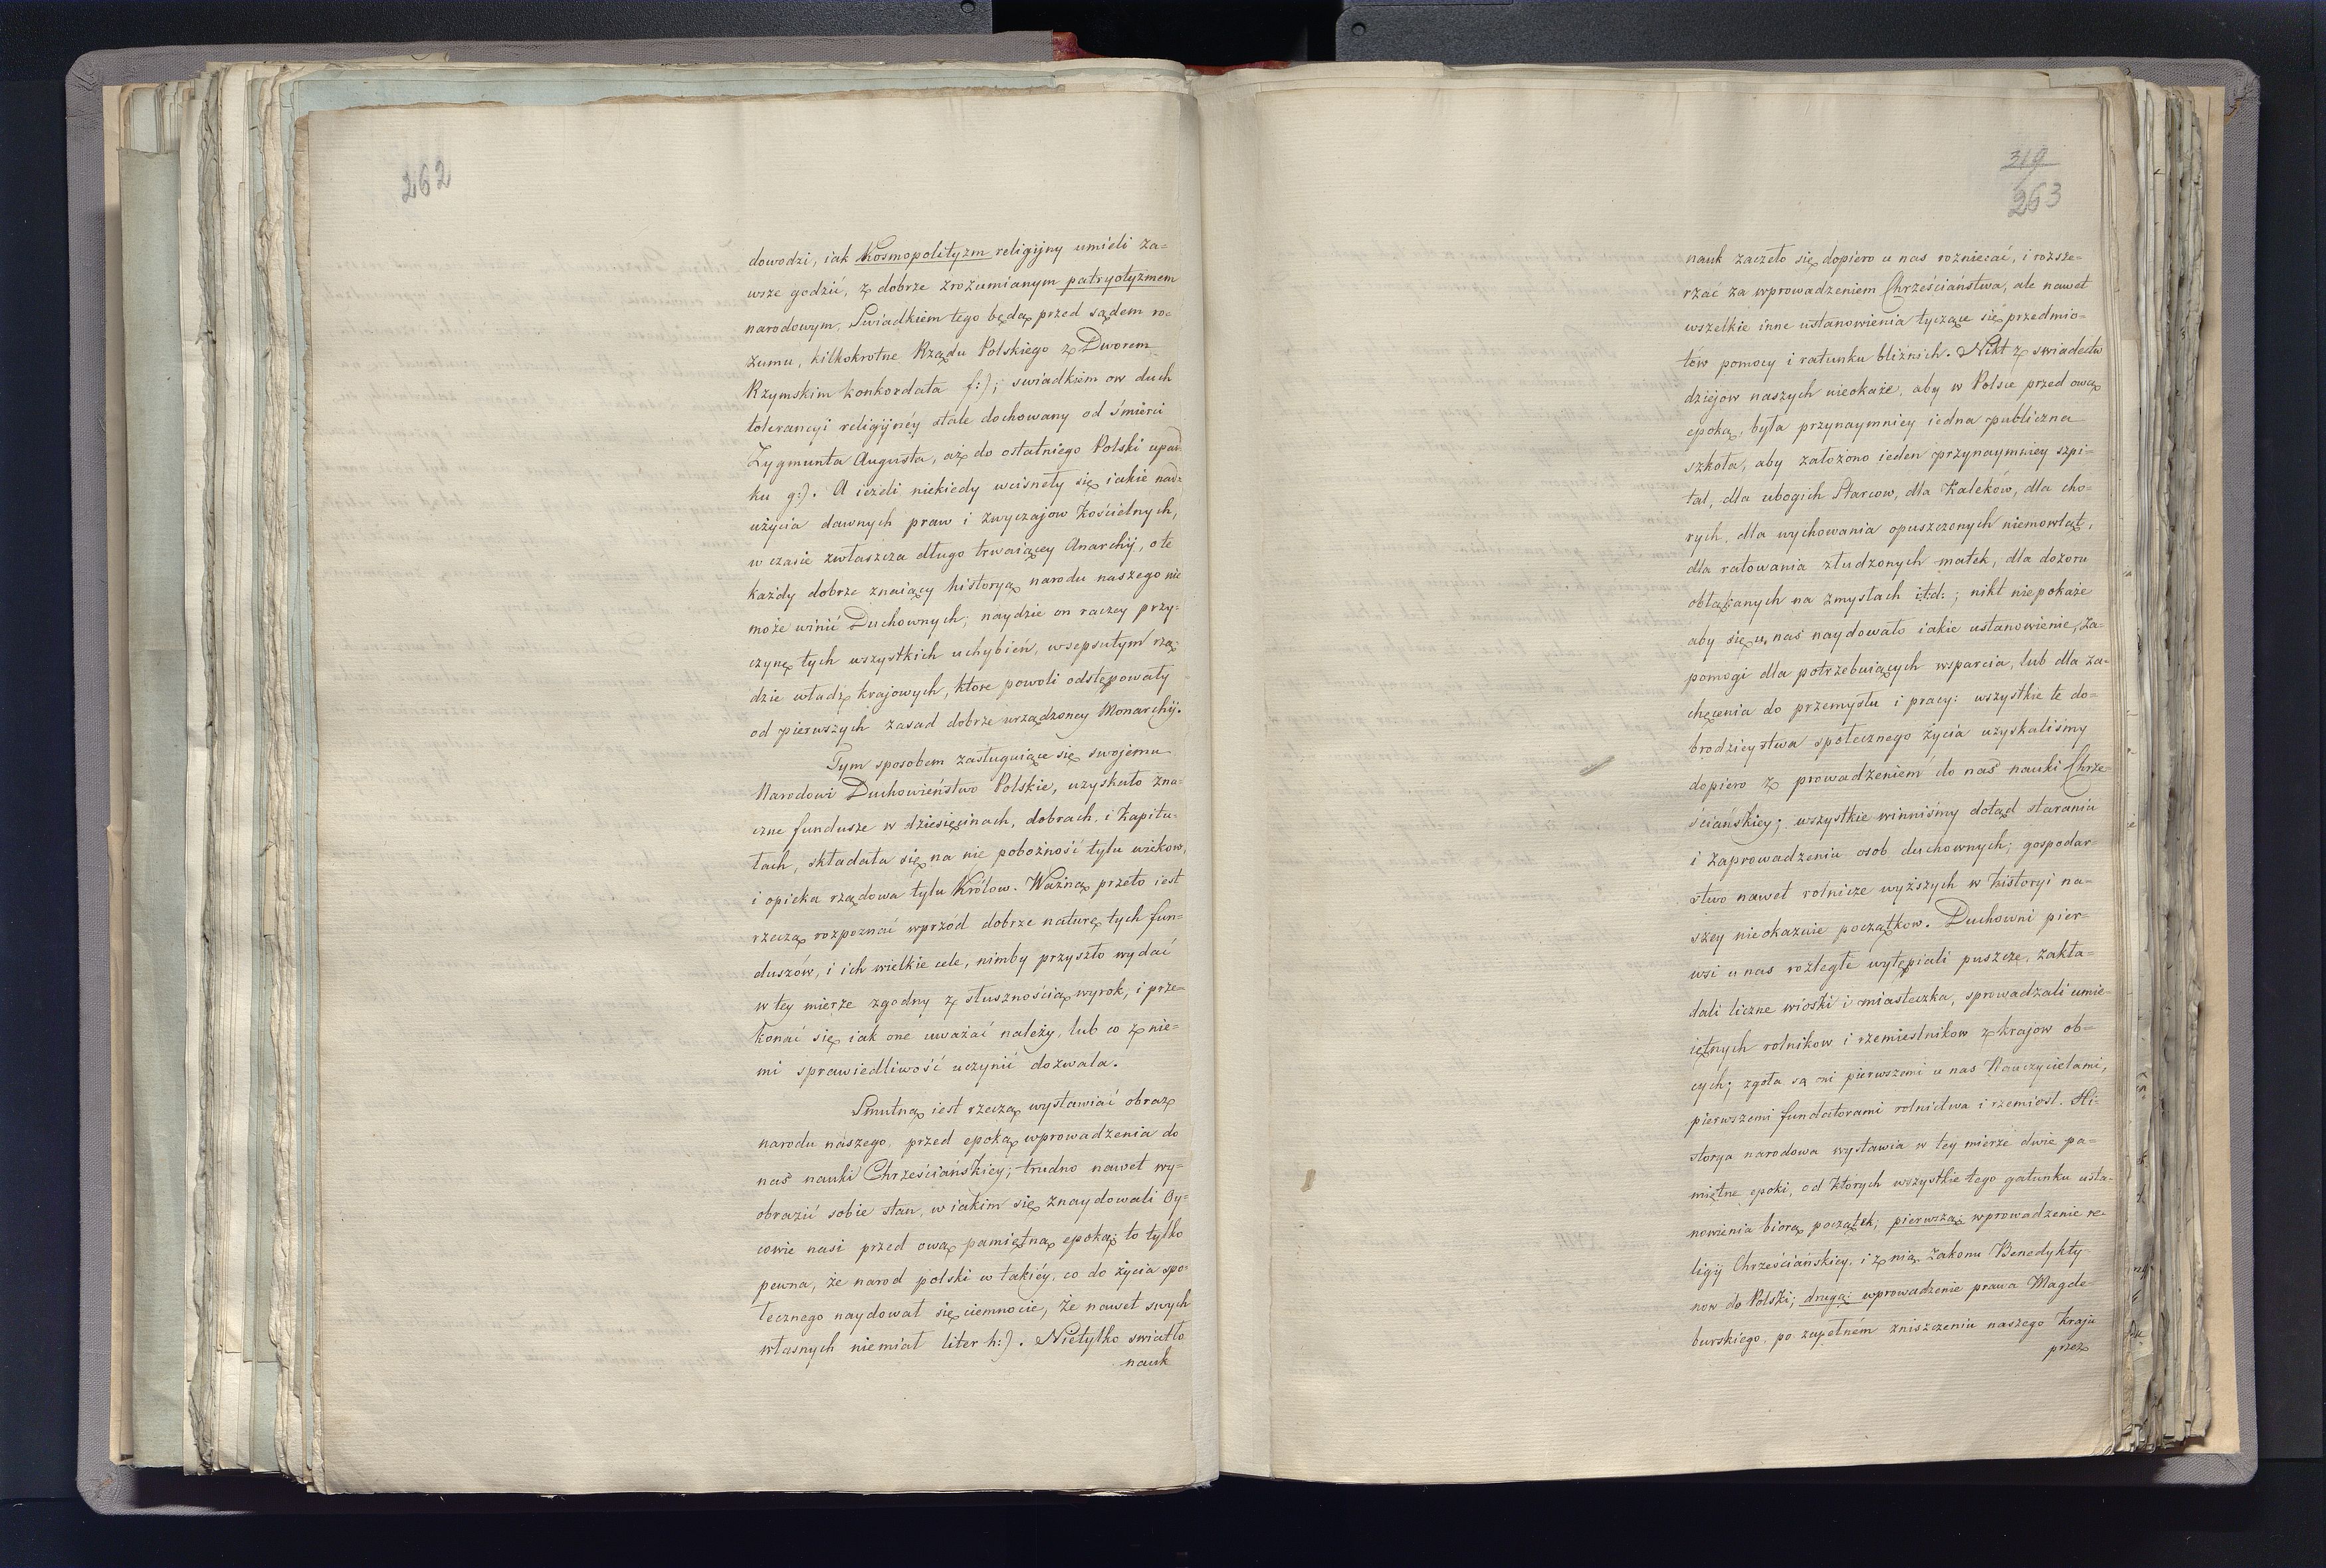 262
dowodzi, iak Kosmopolityzm religijny umieli za=
wsze godzić, z dobrze zrozumianym patryotyzmem
narodowym. Swiadkiem tego będą przed sądem ro=
zumu, kilkokrotne Rządu Polskiego z Dworem
Rzymskim konkordata f:); swiadkiem ow duch
tolerancyi religijnéy stale dochowany od śmierci
Zygmunta Augusta, aż do ostatniego Polski upad=
ku g:). A ieżeli niekiedy wcisneły się iakie nad=
użycia dawnych praw i zwyczajow Kościelnych,
w czasie zwłaszcza długo trwaiącey Anarchij, o te
każdy dobrze znaiący historyą narodu naszego nie
może winić Duchownych; naydzie on raczey przy=
czynę tych wszystkich uchybień, w sepsutym rzą=
dzie władz krajowych, ktore powoli odstępowały
od pierwszych zasad dobrze urządzoney Monarchij.
Tym sposobem zasługuiące się swojemu
Narodowi Duchowieństwo Polskie, uzyskało zna=
czne fundusze w dziesięcinach, dobrach, i Kapitu=
łach, składała się na nie pobożność tylu wiekow,
i opieka rządowa tylu Królow. Ważną przeto iest
rzeczą rozpoznać wprzód dobrze naturę tych fun=
duszów, i ich wielkie cele, nimby przyszło wydać
w tey mierze zgodny z słusznością wyrok, i prze=
konać się iak one uważać należy, lub co z nie=
mi sprawiedliwość uczynić dozwala.
Smutną iest rzeczą wystawiać obraz
narodu naszego, przed epoką wprowadzenia do
nas nauki Chrześciańskiey; trudno nawet wy=
obrazić sobie stan, w iakim się znaydowali Oy=
cowie nasi przed ową pamiętną epoką; to tylko
pewna, że narod polski w takiéy, co do życia spo=
łecznego naydował się ciemnocie, że nawet swych
własnych niemiał liter h:). Nietylko swiatło
nauk
319
263
nauk zaczeło się dopiero u nas rozniecać, i rozsze=
rzać za wprowadzeniem Chrześciaństwa, ale nawet
wszelkie inne ustanowienia tyczące się przedmio=
tów pomocy i ratunku bliźnich. Nikt z swiadectw
dziejow naszych nieokaże, aby w Polsce przed ową
epoką, była przynaymniey iedna publiczna
szkoła, aby założono ieden przynaymniey szpi=
tal, dla ubogich Starcow, dla Kaleków, dla cho=
rych, dla wychowania opuszczonych niemowląt,
dla ratowania złudzonych matek, dla dozoru
obłąkanych na zmysłach itd:; nikt niepokaże
aby się u nas naydowało iakie ustanowienie, za=
pomogi dla potrzebuiących wsparcia, lub dla za=
chęcenia do przemysłu i pracy: wszystkie te do=
brodzieystwa społecznego życia uzyskaliśmy
dopiero z prowadzeniem do nas nauki Chrze=
ściańskiey; wszystkie winniśmy dotąd staraniu
i zaprowadzeniu osob duchownych; gospodar=
stwo nawet rolnicze wyższych w historyi na=
szey nieokazuie początkow. Duchowni pier=
wsi u nas rozległe wytępiali puszcze, zakła=
dali liczne wioski i miasteczka, sprowadzali umie=
iętnych rolnikow i rzemieslnikow z krajow ob=
cych; zgoła są oni pierwszemi u nas Nauczycielami,
pierwszemi fundatorami rolnictwa i rzemiosł. Hi=
storya narodowa wystawia w tey mierze dwie pa=
miętne epoki, od których wszystkie tego gatunku usta=
nowienia biorą początek; pierwszą: wprowadzenie re=
ligij Chrześciańskiey, i z nią Zakonu Benedykty=
now do Polski; drugą: wprowadzenie prawa Magde=
burskiego, po zupełném zniszczeniu naszego Kraju
przez